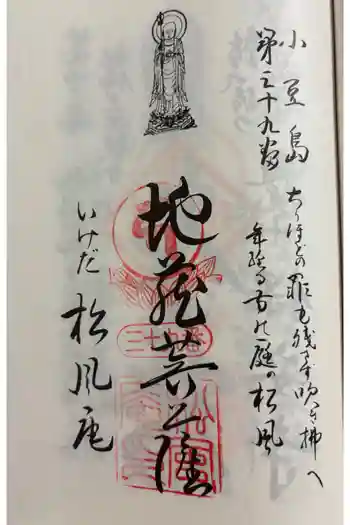 小豆島
第三十九番
ちりほどの罪も残さず吹き拂へ
年経る古の庭の松風
地蔵菩薩
二十九番
いけだ 松風庵